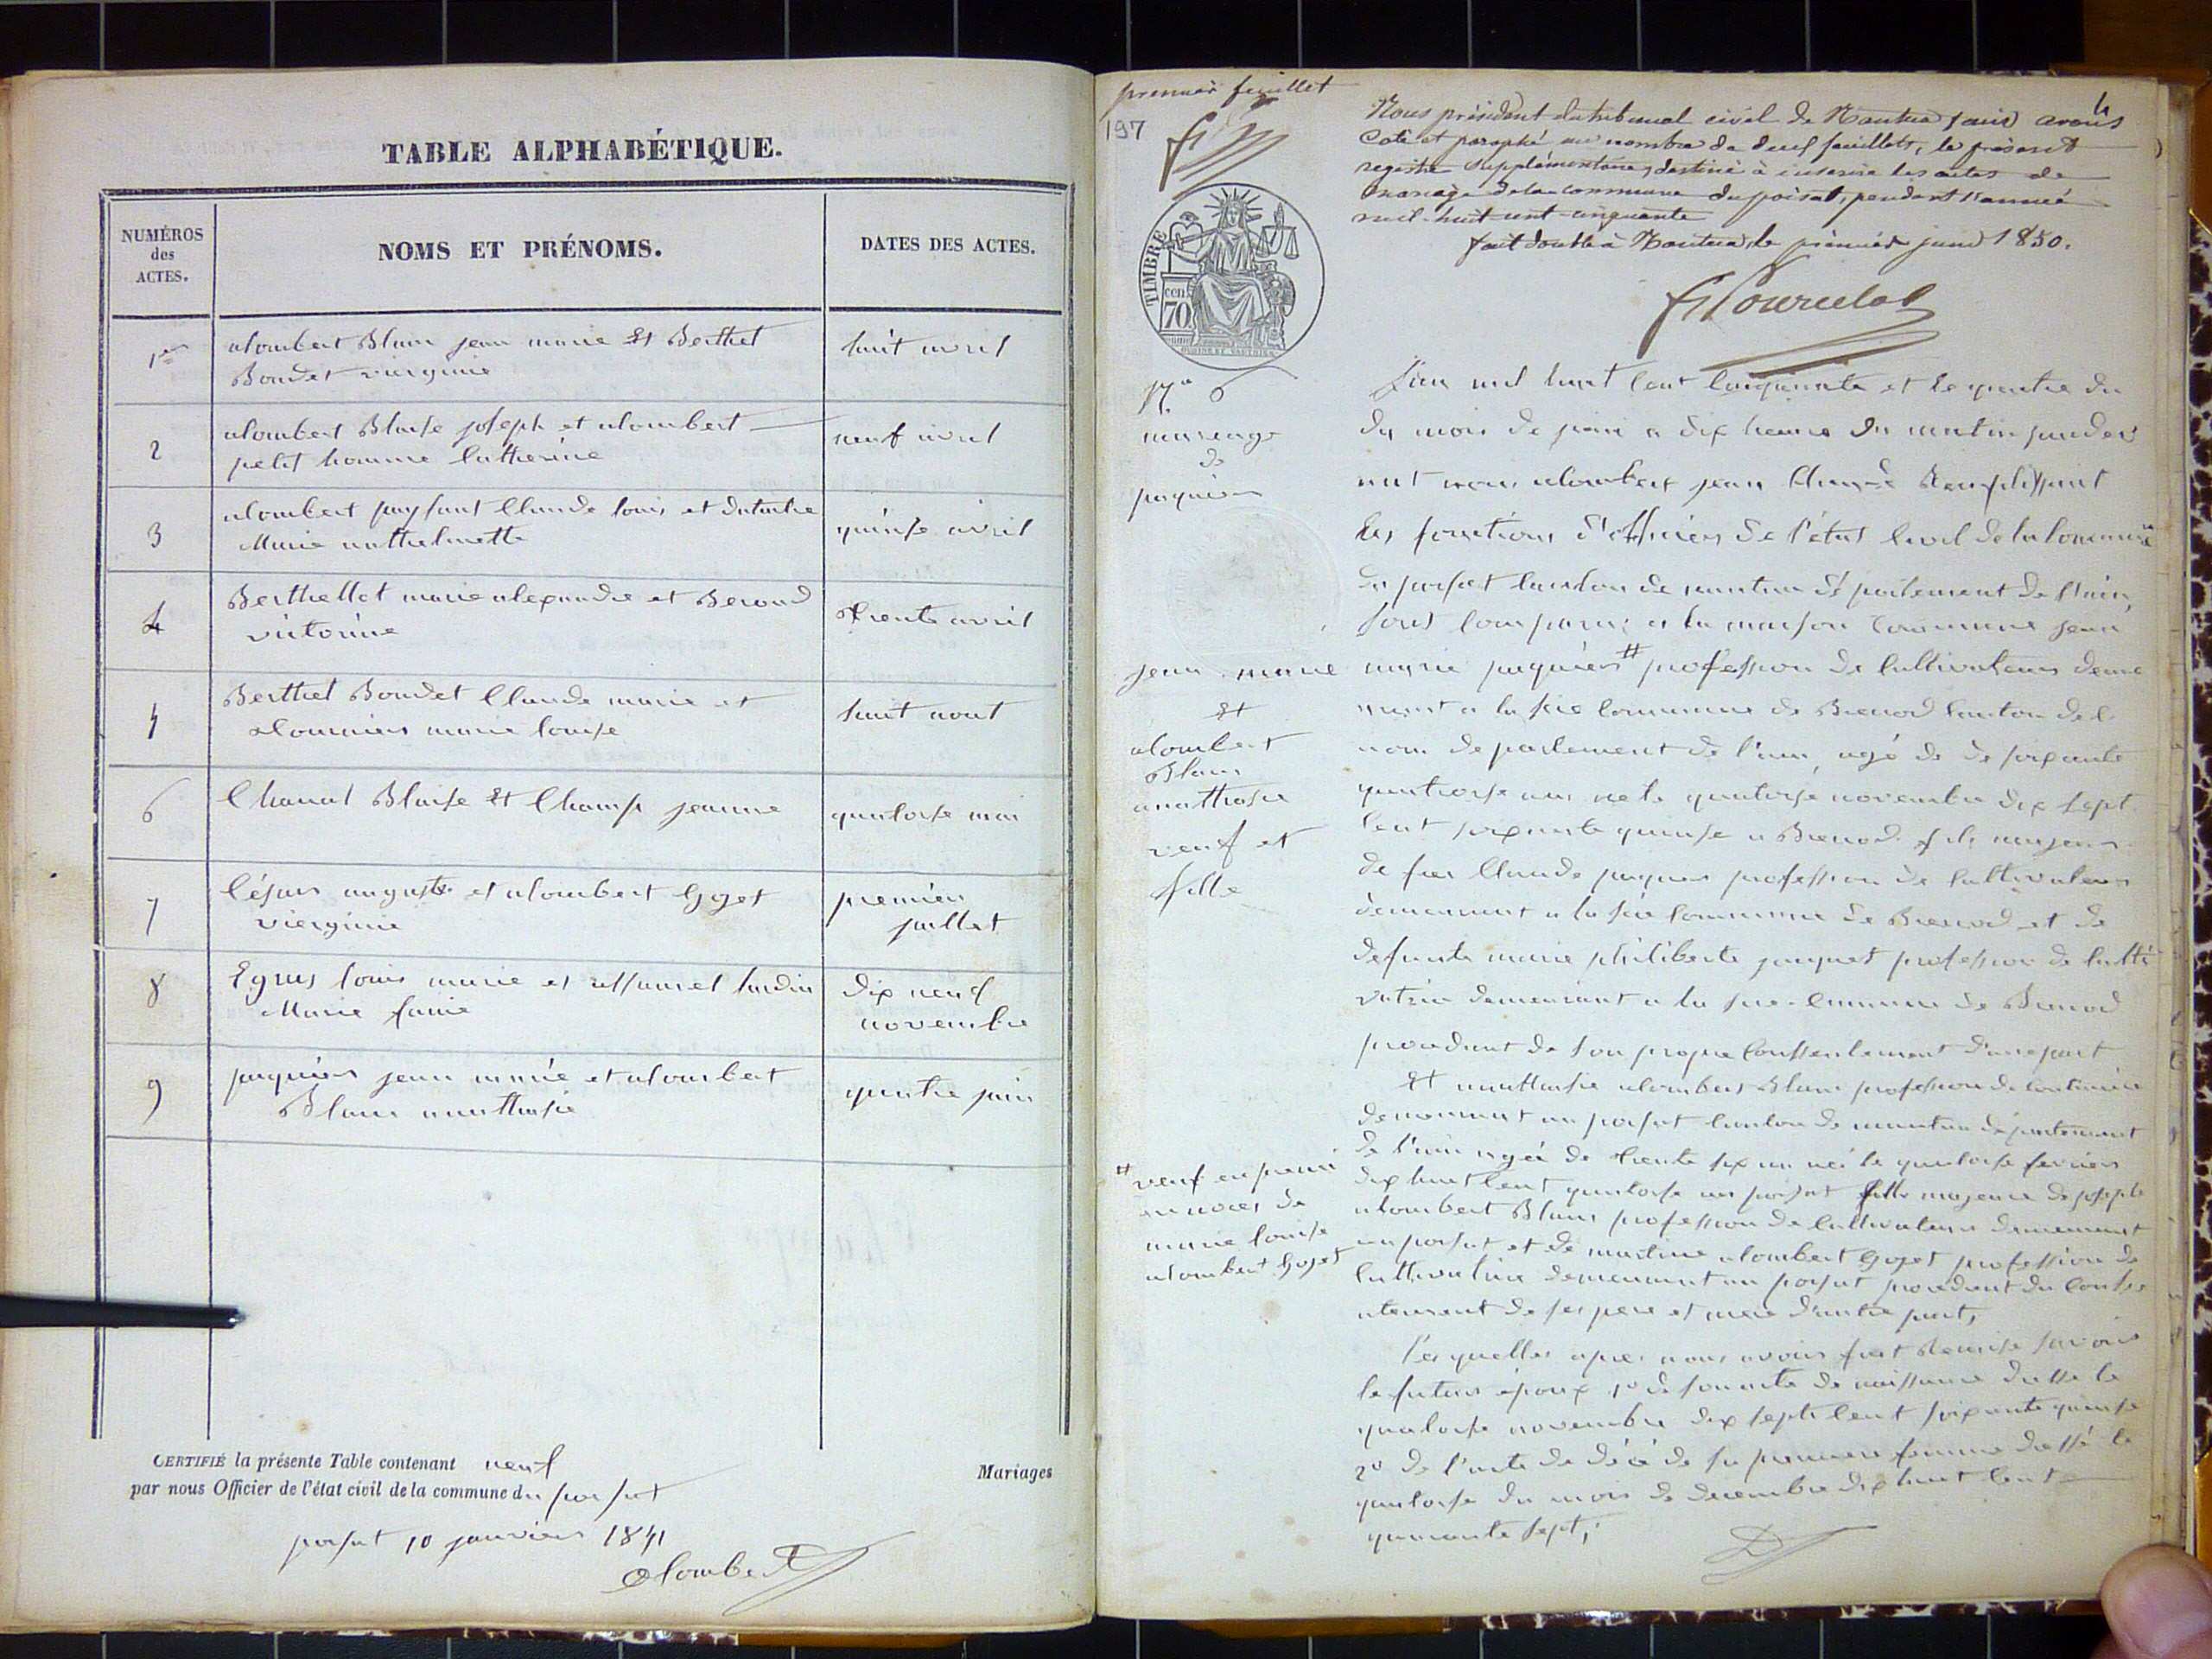 TABLE ALPHABÉTIQUE.
NUMÉROS
des
ACTES.
NOMS ET PRÉNOMS.
DATES DES ACTES.
1er
alombert Blanc jean marie Et Berthet
Boudet vierginie
huit avril
2
alombert Blaise joseph et alombert
petit homme Catherine
neuf avril
3
alombert Claude louis et
Marie
quinse avril
4
Berthellot marie alexandre et Beroud
victorine
trente avril
5
Berthet Boudet Claude marie et
marie louise
huit aout
6
Chanal Blaise Et Champ jeanne
quatorse mai
7
auguste et alombert Goget
vierginie
premier
juillet
8
Egrus louis marie et
Marie
dix neuf
novembre
9
paquier jean marie et alombert
Blanc anatthasie
quatre juin
CERTIFIÉ la présente Table contenant neuf
Mariages
par nous Officier de l'état civil de la commune du poisat
poisat 10 janvier 1851
Alombert
premier feuillet
197
4
Nous président du tribunal civil de Nantua (ain) avons
Coté et paraphé au nombre de deux feuillets, le présent
registre supplémentaire, destiné à inscrire les actes de
mariage de la commune du poisat, pendant l'année
mil-huit-cent-cinquante
fait double à Nantua, le premier juin 1850.
TIMBRE
cen.
70
N° 6
mariage
de
paquier
jean marie
Et
alombert
Blanc
anatthasie
veuf et
fille
L'an mil huit Cent Cinquante et le quatre du
du mois de juin a dix heures du matin pardev
ant nous alombert jean Claude Remplissant
les fonctions d'officier de l'état Civil de la Commune
du poisat Canton de nantua département de l'ain,
sont Comparus a la maison Commune jean
marie paquier # profession de Cultivateur deme
urant a la scie Commune de Brenod Canton du
nom departement de l'ain, agé de de soixante
quatorse ans né le quatorse novembre dix sept
Cent soixante quinse a Brenod fils majeur
de feu Claude paquier profession de Cultivateur
demeurant a la scie Commune de Brenod et de
defunte marie philiberte profession de Culti
vatrice demeurant a la scie Commune de Brenod
procedant de son propre Consentement d'une part
Et anatthasie alombert Blanc profession de
demeurant au poisat Canton de nantua département
de l'ain agée de trente six an née le quatorse fevrier
dix huit Cent quatorse au poisat fille majeure de joseph
alombert Blanc profession de Cultivateur demeurant
au poisat et de alombert Goget profession de
Cultivatrice demeurant au poisat procedant du Conse
ntement de ses pere et mere d'autre part,
# veuf en premi
ere noces de
marie louise
alombert Goget
Lesquelles apres nous avoir fait Remise savoir
le futur époux 1° de son acte de naissance dressé le
quatorse novembre dix sept Cent soixante quinse
2° de l'acte de décé de sa premiere femme dressé le
quatorse du mois de decembre dix huit Cent
quarante sept,